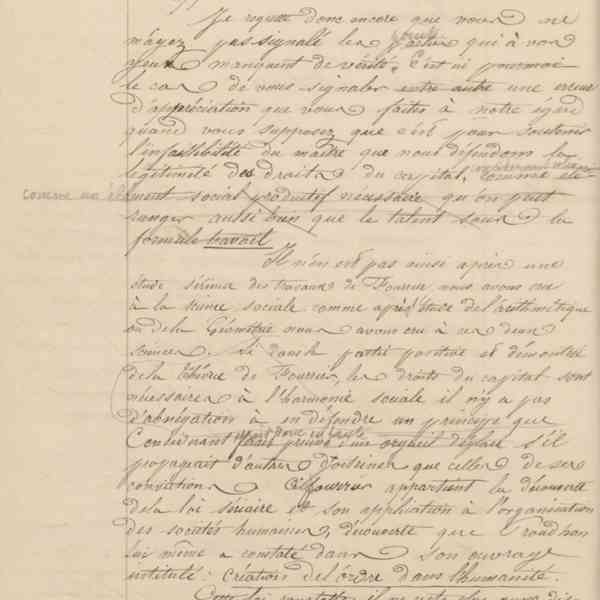 Je regrette donc encore que vous ne
m'ayez pas signalé les parties qui à vos
yeux manquent de vérité. C'est ici pour moi
le cas de vous signaler entre autre une erreur
d'appréciation que vous faites à notre égard
quand vous supposez que c'est pour soutenir
l'infaillibilité du maître que nous défendons la
légitimité des droits du capital, comme élé-
comme un
ment social productif nécessaire qu'on peut
ranger aussi bien que le talent sous la
formule travail
Il n'en est pas ainsi après une
étude sérieuse des travaux de Fourier nous avons cru
à la science sociale comme après étude de l'arithmétique
ou de la Géométrie nous avons cru à ces deux
sciences. Si dans la partie positive et démontrée
de la théorie de Fourrier, les droits du capital sont
nécessaires à l'harmonie sociale il n'y a pas
d'abnégation à en défendre un principe que
Considerant ferait preuve d'un orgueil déplacé s'il
propageait d'autres doctrines que celles de ses
convictions. à Fourrier appartient la découverte
de la loi sériaire et son application à l'organisation
des sociétés humaines, découverte que Proudhon
lui même a constaté dans son ouvrage
intitulé : Création de l'ordre dans l'humanité.
Cette loi